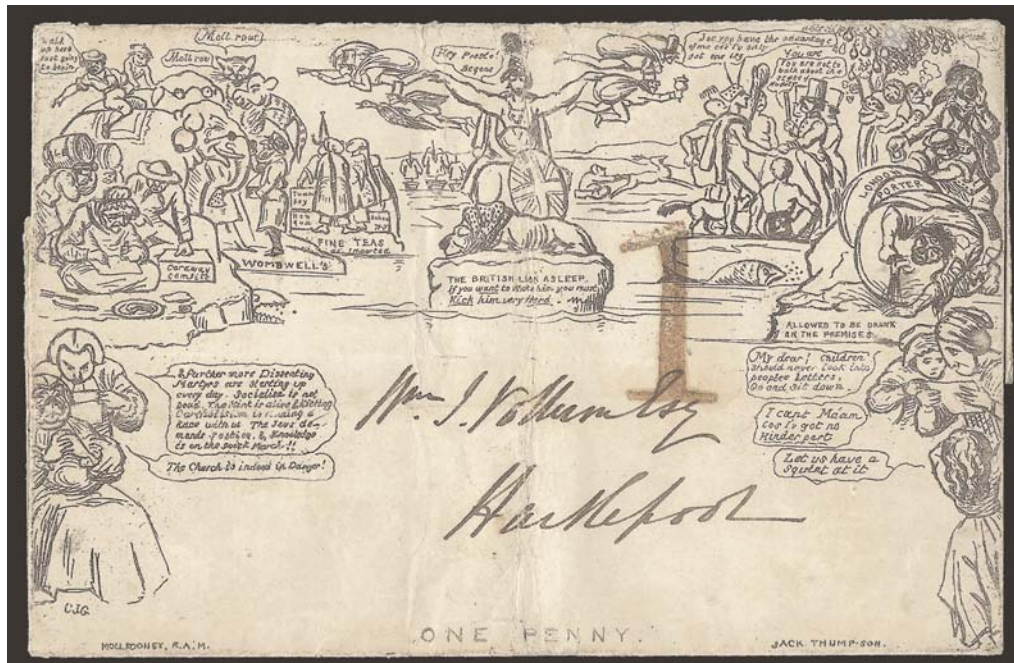 Walk
up here
Just going
to begin
Moll row
Moll row
Hey Presto!
Begone
You are
You are not to
talk about the
FINE TEAS
as imported
WOMBWELL'S
Caraway
Comfits
THE BRITISH LION ASLEEP
If you want to Wake him you must
Kick him very Hard
LONDON
PORTER
ALLOWED TO BE DRANK
ON THE PREMISES
& further more Dissenting
Martyrs are starting up
every day. Socialism is not
dead. The Mint is alive & Kicking
Chartism is running a
Race with us The Jews de-
mands Justice, & Knowledge
is on the quick March!!
The Church is indeed in Danger!
My dear! Children
should never look into
peoples Letters.
Go and sit down
I cant Ma'am
Cos I's got no
Hinder part
Let us have a
Squint at it
1
Wm J. Vollum Esq
Hartlepool
CJG
MOLLROONEY, R.A.M.
ONE PENNY.
JACK THUMP-SON.